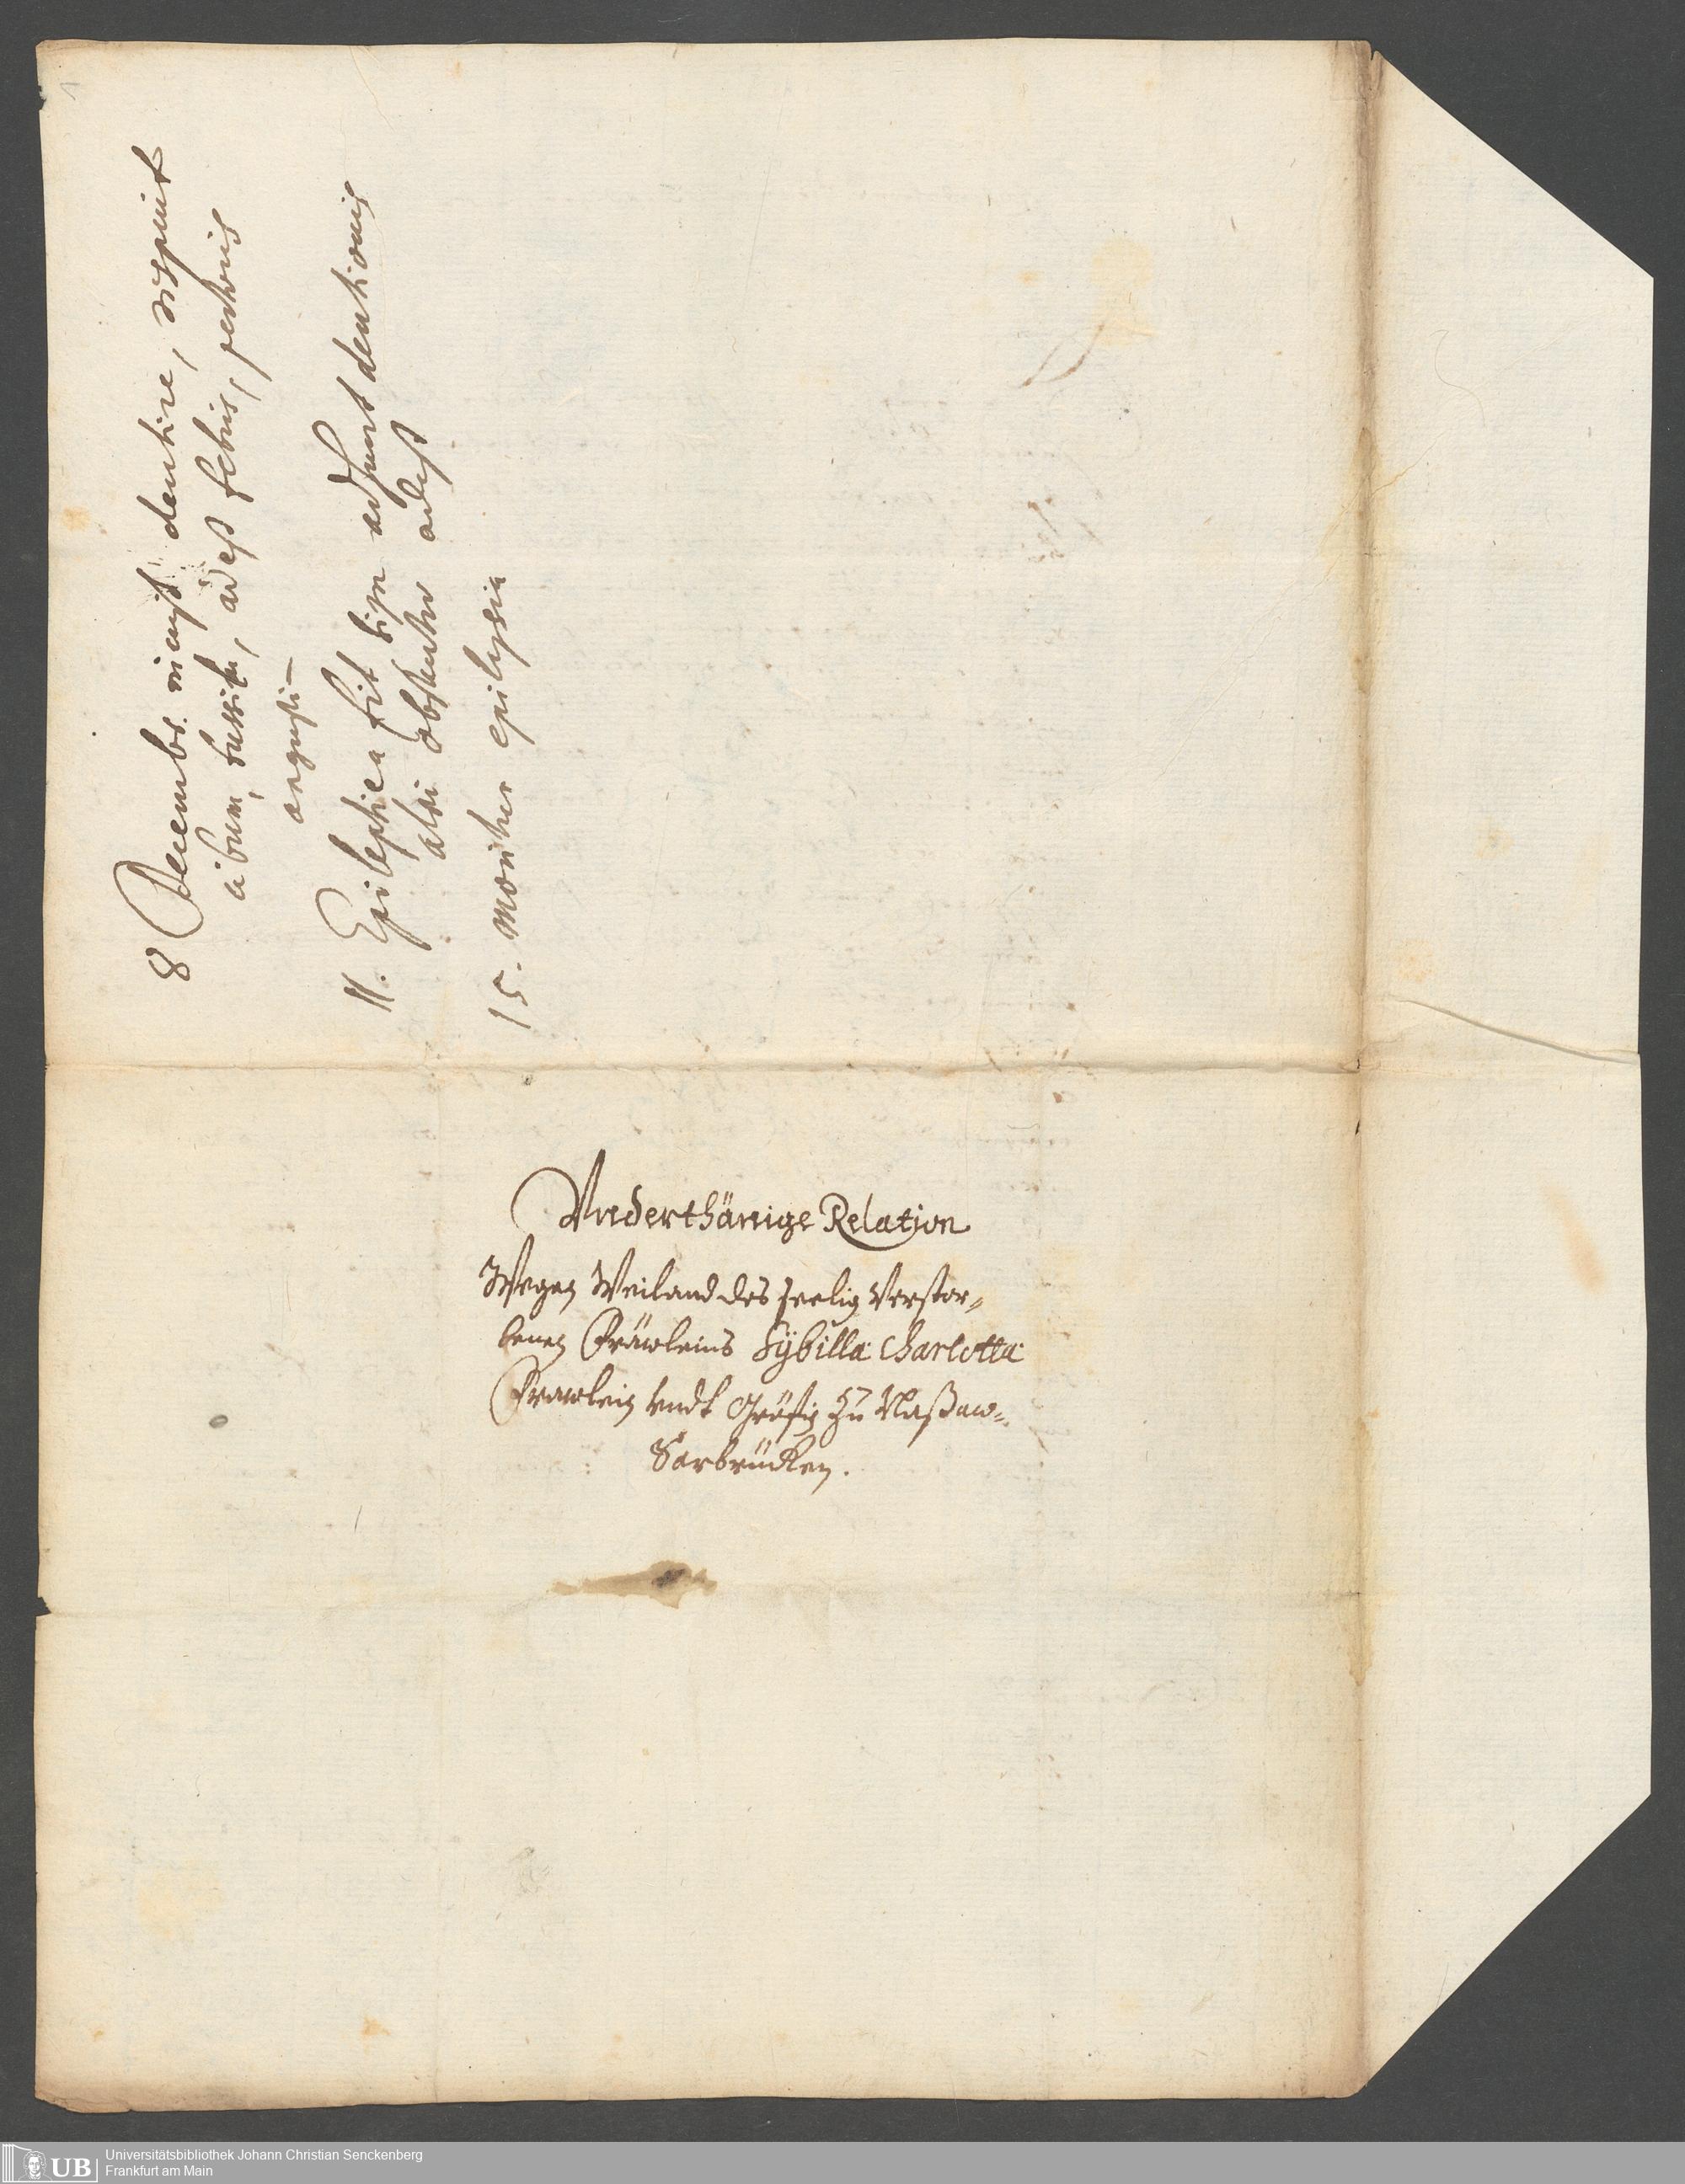 8 Decembr. incipit dentire, respuit
cibum, tussit, adest febris, pectoris
angusti-
11. Epileptica fit bis adsunt dentionis
alvi obstructio adest
15. moritur epilepsia
Vnderthänige Relation
Wegen Weiland des Seelig Verstor-
benen Fräwleins Sÿbilla Charlotta
Frawlein vndt Gräfin Zu Naßaw-
Sarbrücken.
Universitätsbibliothek Johann Christian Senckenberg
Frankfurt am Main
UB